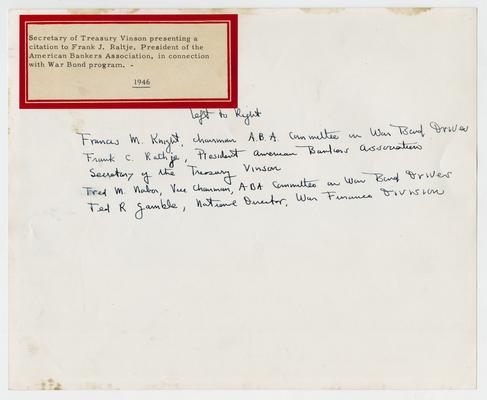 Secretary of Treasury Vinson presenting a
citation to Frank J. Raltje, President of the
American Bankers Association, in connection
with War Bond program. -
1946
Left to Right
Francis M. Knight, chairman A.B.A. Committee on War Bond Drives
Frank C. Rathje, President American Bankers Association
Secretary of the Treasury Vinson
Fred M. Vice Chairman, ABA Committee on War Bond Drives
Ted R Gamble, National Director, War Finance Division